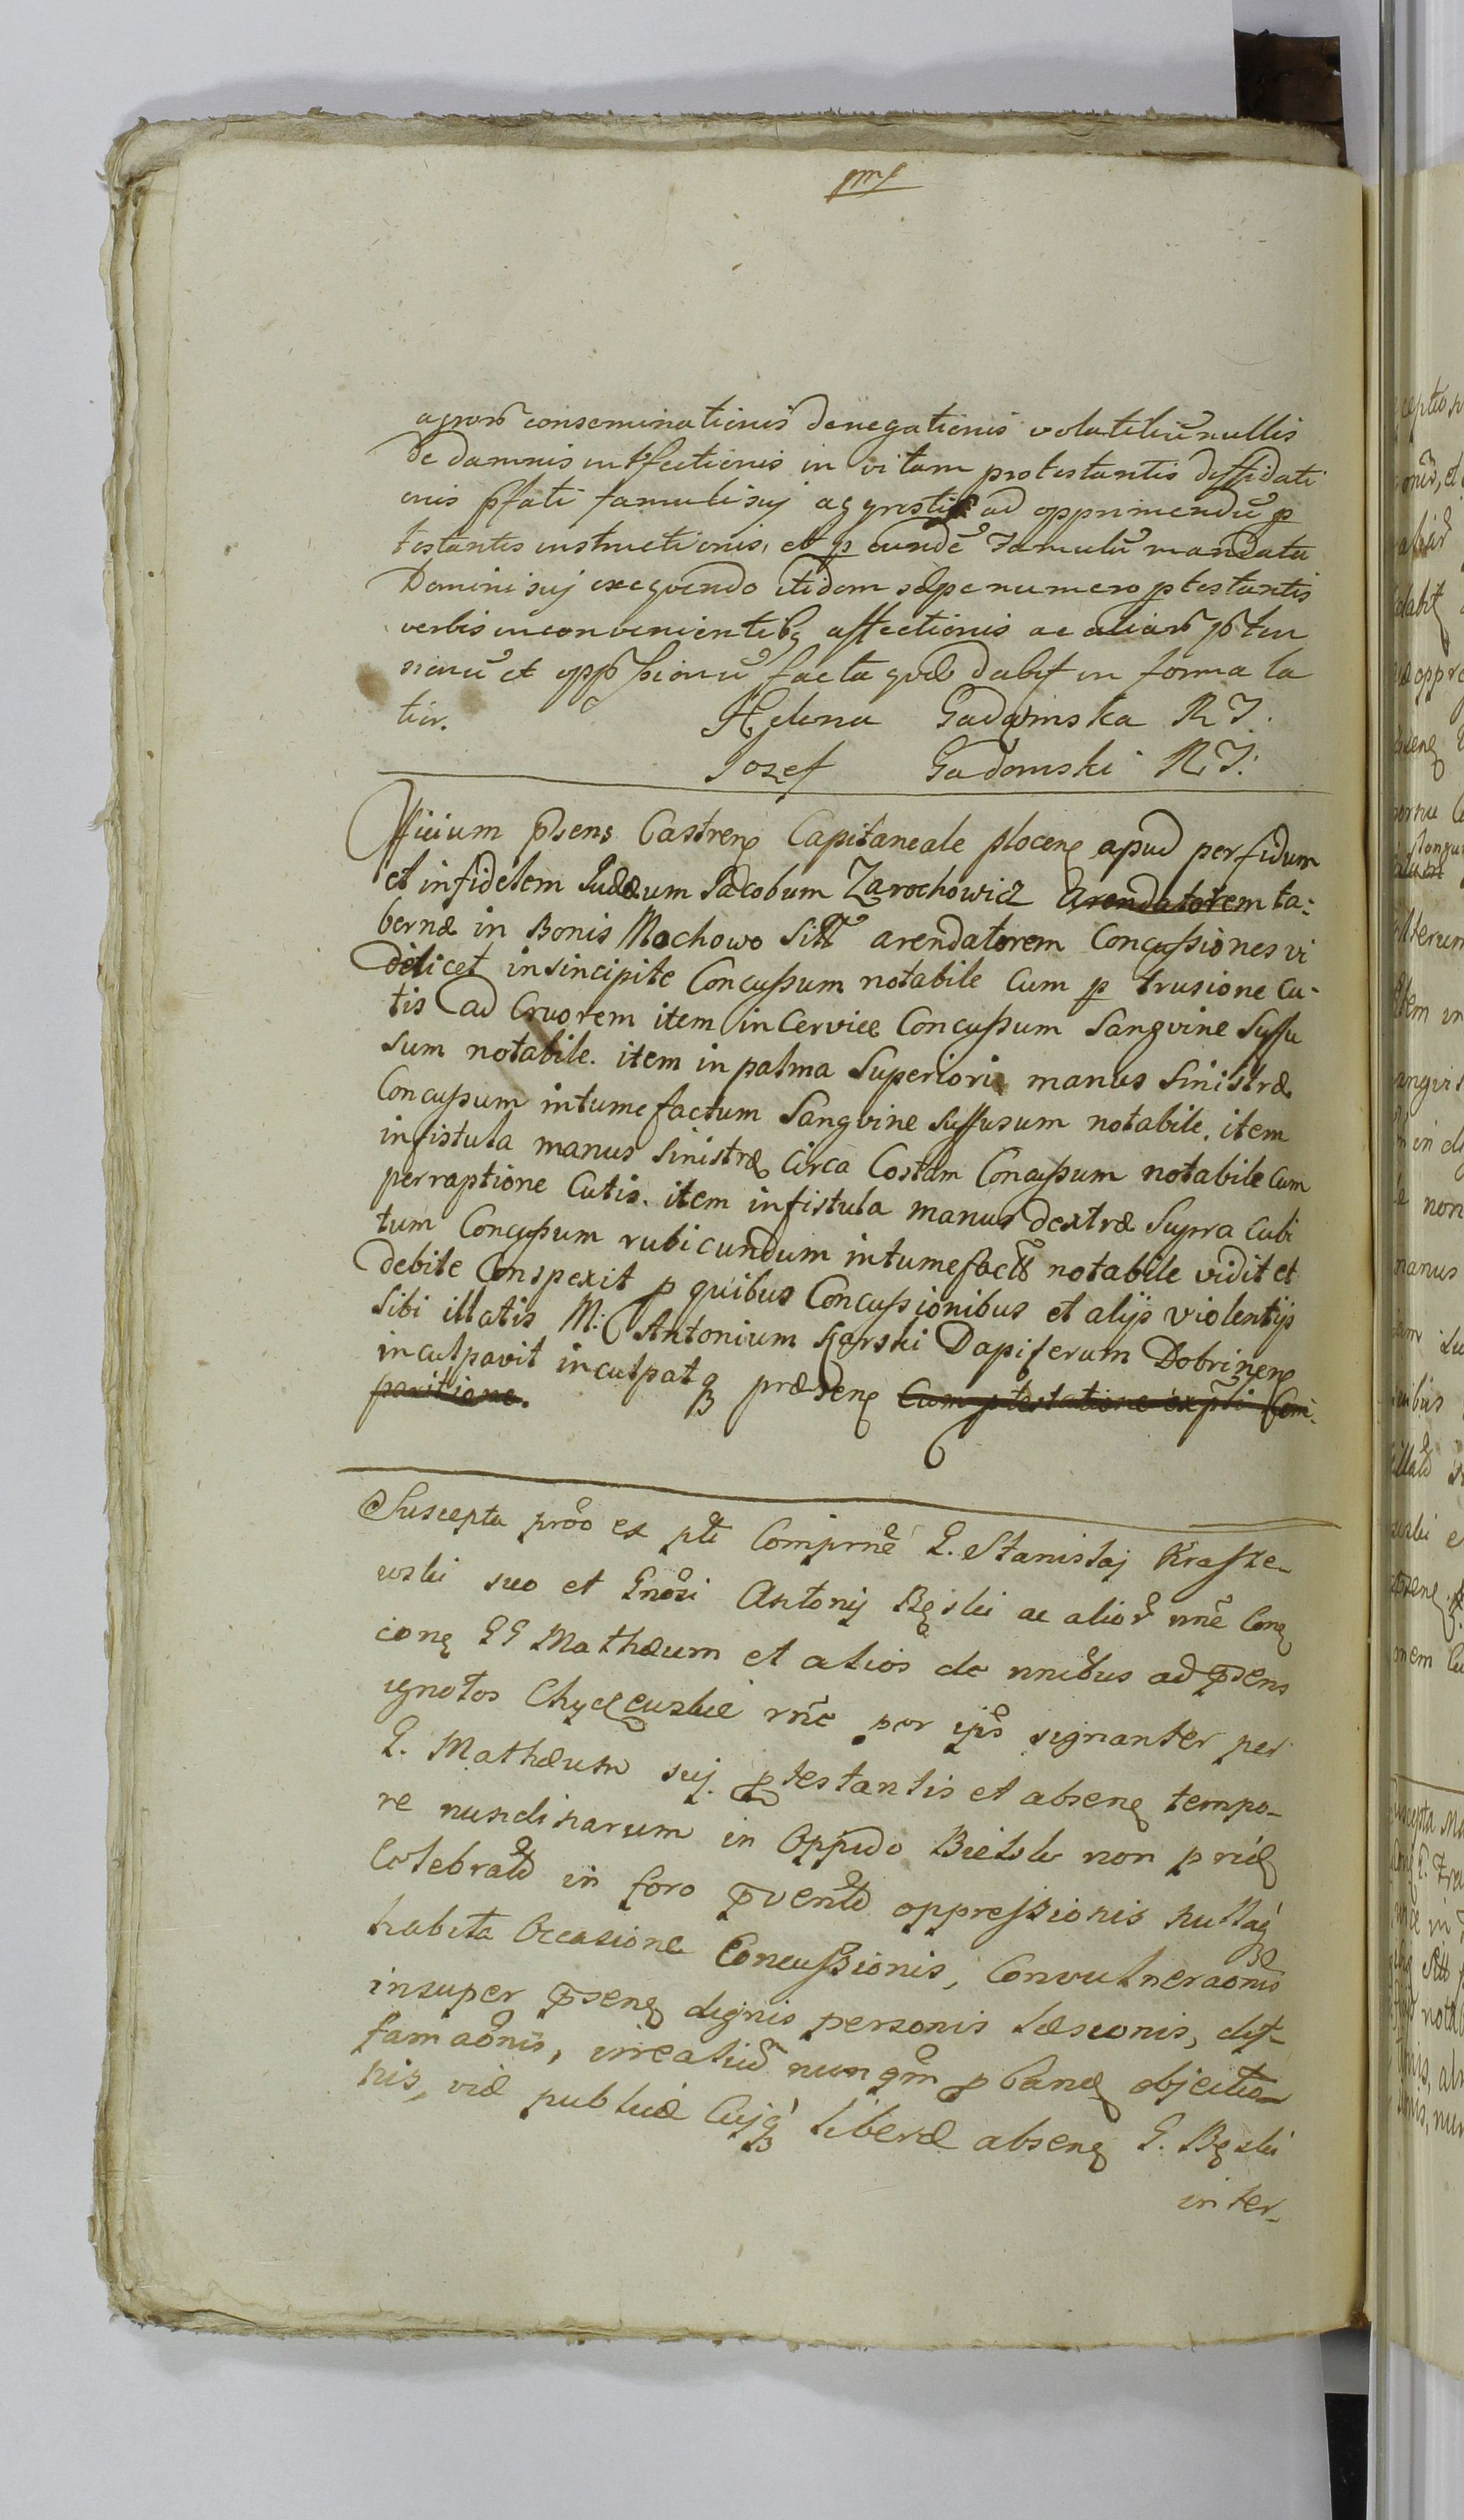 agror̃ conseminationis denegationis volatiliũ nullis
de damnis intfectionis in vitam protestantis diffidati
onis pfati famuli suj aggrestis ad opprimendũ p
testantis instructionis, et p eundẽ Famulũ mandata
Domini suj exequendo itidem sæpe numero ptestantis
verbis inconvenientibq affectionis ac aliar̃ pten
sionũ et oppssionũ facta quæ dabit in forma la
tior.
Helena Gadomska R J.
Jozef Gadomski R J.
Officium Pñens Castrenę Capitaneale plocenę apud perfidum
et infidelem Judæum Jacobum Zarochowicz Arendatorem ta-
bernæ in Bonis Mochowo Sitt arendatorem Concussiones vi
delicet in sincipite Concussum notabile Cum p trusione Cu-
tis ad Cruorem item in Cervice Concussum Sangvine Suffu
sum notabile. item in palma Superiori manus Sinistræ
Concussum intumefactum Sangvine Suffusum notabile. item
in fistula manus Sinistræ Circa Costam Concussum notabile Cum
perraptione Cutis. item in fistula manus dextræ Supra Cubi
tum Concussum rubicundum intumefactũ notabile vidit et
debite Conspexit p quibus Concussionibus et alijs violentijs
Sibi illatis M: Antonium Karski Dapiferum Dobrinenę
inculpavit inculpatq prædenę Cum ptestatione ex pti Com-
paritione.
Suscepta prõo ex pti Comprnẽ G. Stanislaj Krasze-
wski suo et Gnõsi Antonij Bęski ac alior̃ nnẽ Conę
cionę GG Mathæum et alios de nnibus ad p̃sens
ignotos Chyczewskie rñe por ipõ signanter per
G. Mathæum suj ptestantis et absenę tempo-
re nundinarum in Oppido Bielsk non pridę
Celebratõ in foro p̃ventõ oppressionis nullaq
habita Occasione Concussionis, Convulneraonis
insuper p̃senę dignis personis læsionis, dif-
famaõnis, irreatuũ nunqm pbanę objectio-
nis, viæ publicæ Cujq liberæ absenę G. Bęski
inter-